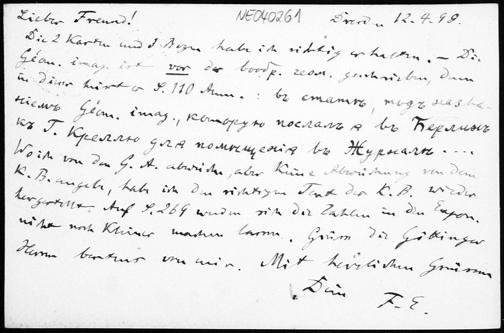 Lieber Freund! NE040261 Dresden 12.4.98.
Die 2 Karten und 3 Bogen habe ich richtig erhalten. — Die
Géom. imag. ist vor der geschrieben, denn
in dieser hier S. 110 Anm.: въ статьѣ, подъ назва-
ніемъ Géom. imag., которую послалъ я въ Берлинъ
къ Г. Креллю для помѣщенія въ Журналъ ....
Wo ich von den G. A. abweiche, aber keine Abweichung von dem
K. B. angebe, habe ich den richtigen Text der K. B. wieder
hergestellt. Auf S. 269 werden sich die Zahlen in den Expon.
nicht noch kleiner machen lassen. Grüsse die Göttinger
Herrn bestens von mir. Mit herzlichen Grüssen
Dein F. E.